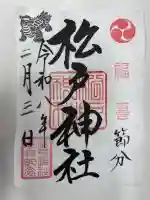 福
節分
松戸神社
令和八年
二月三日